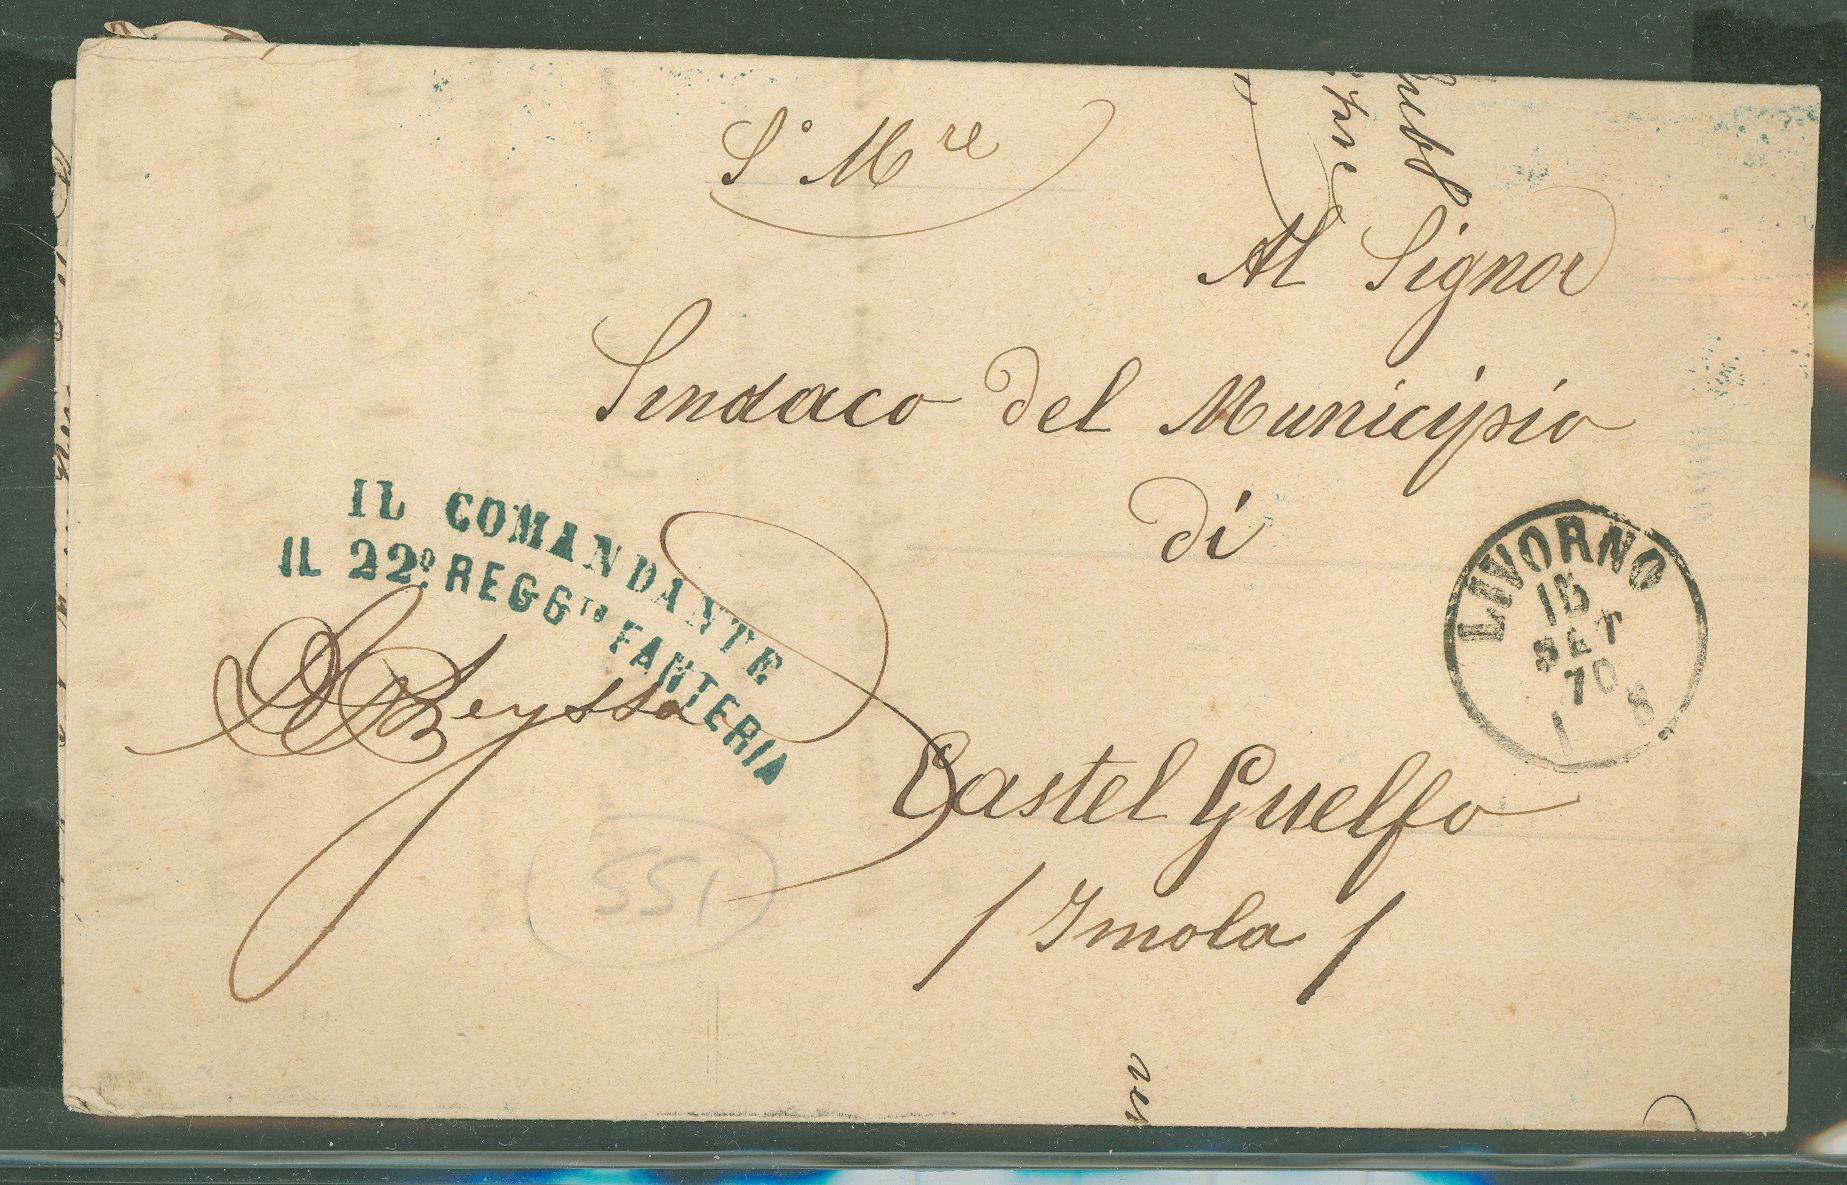 S° M.re
Al Signor
Sindaco del Municipio
di
IL COMANDANTE
IL 22° REGG.TO FANTERIA
Beyssa
LIVORNO
15
SET
70
1 S
Castel Guelfo
/ Imola /
551